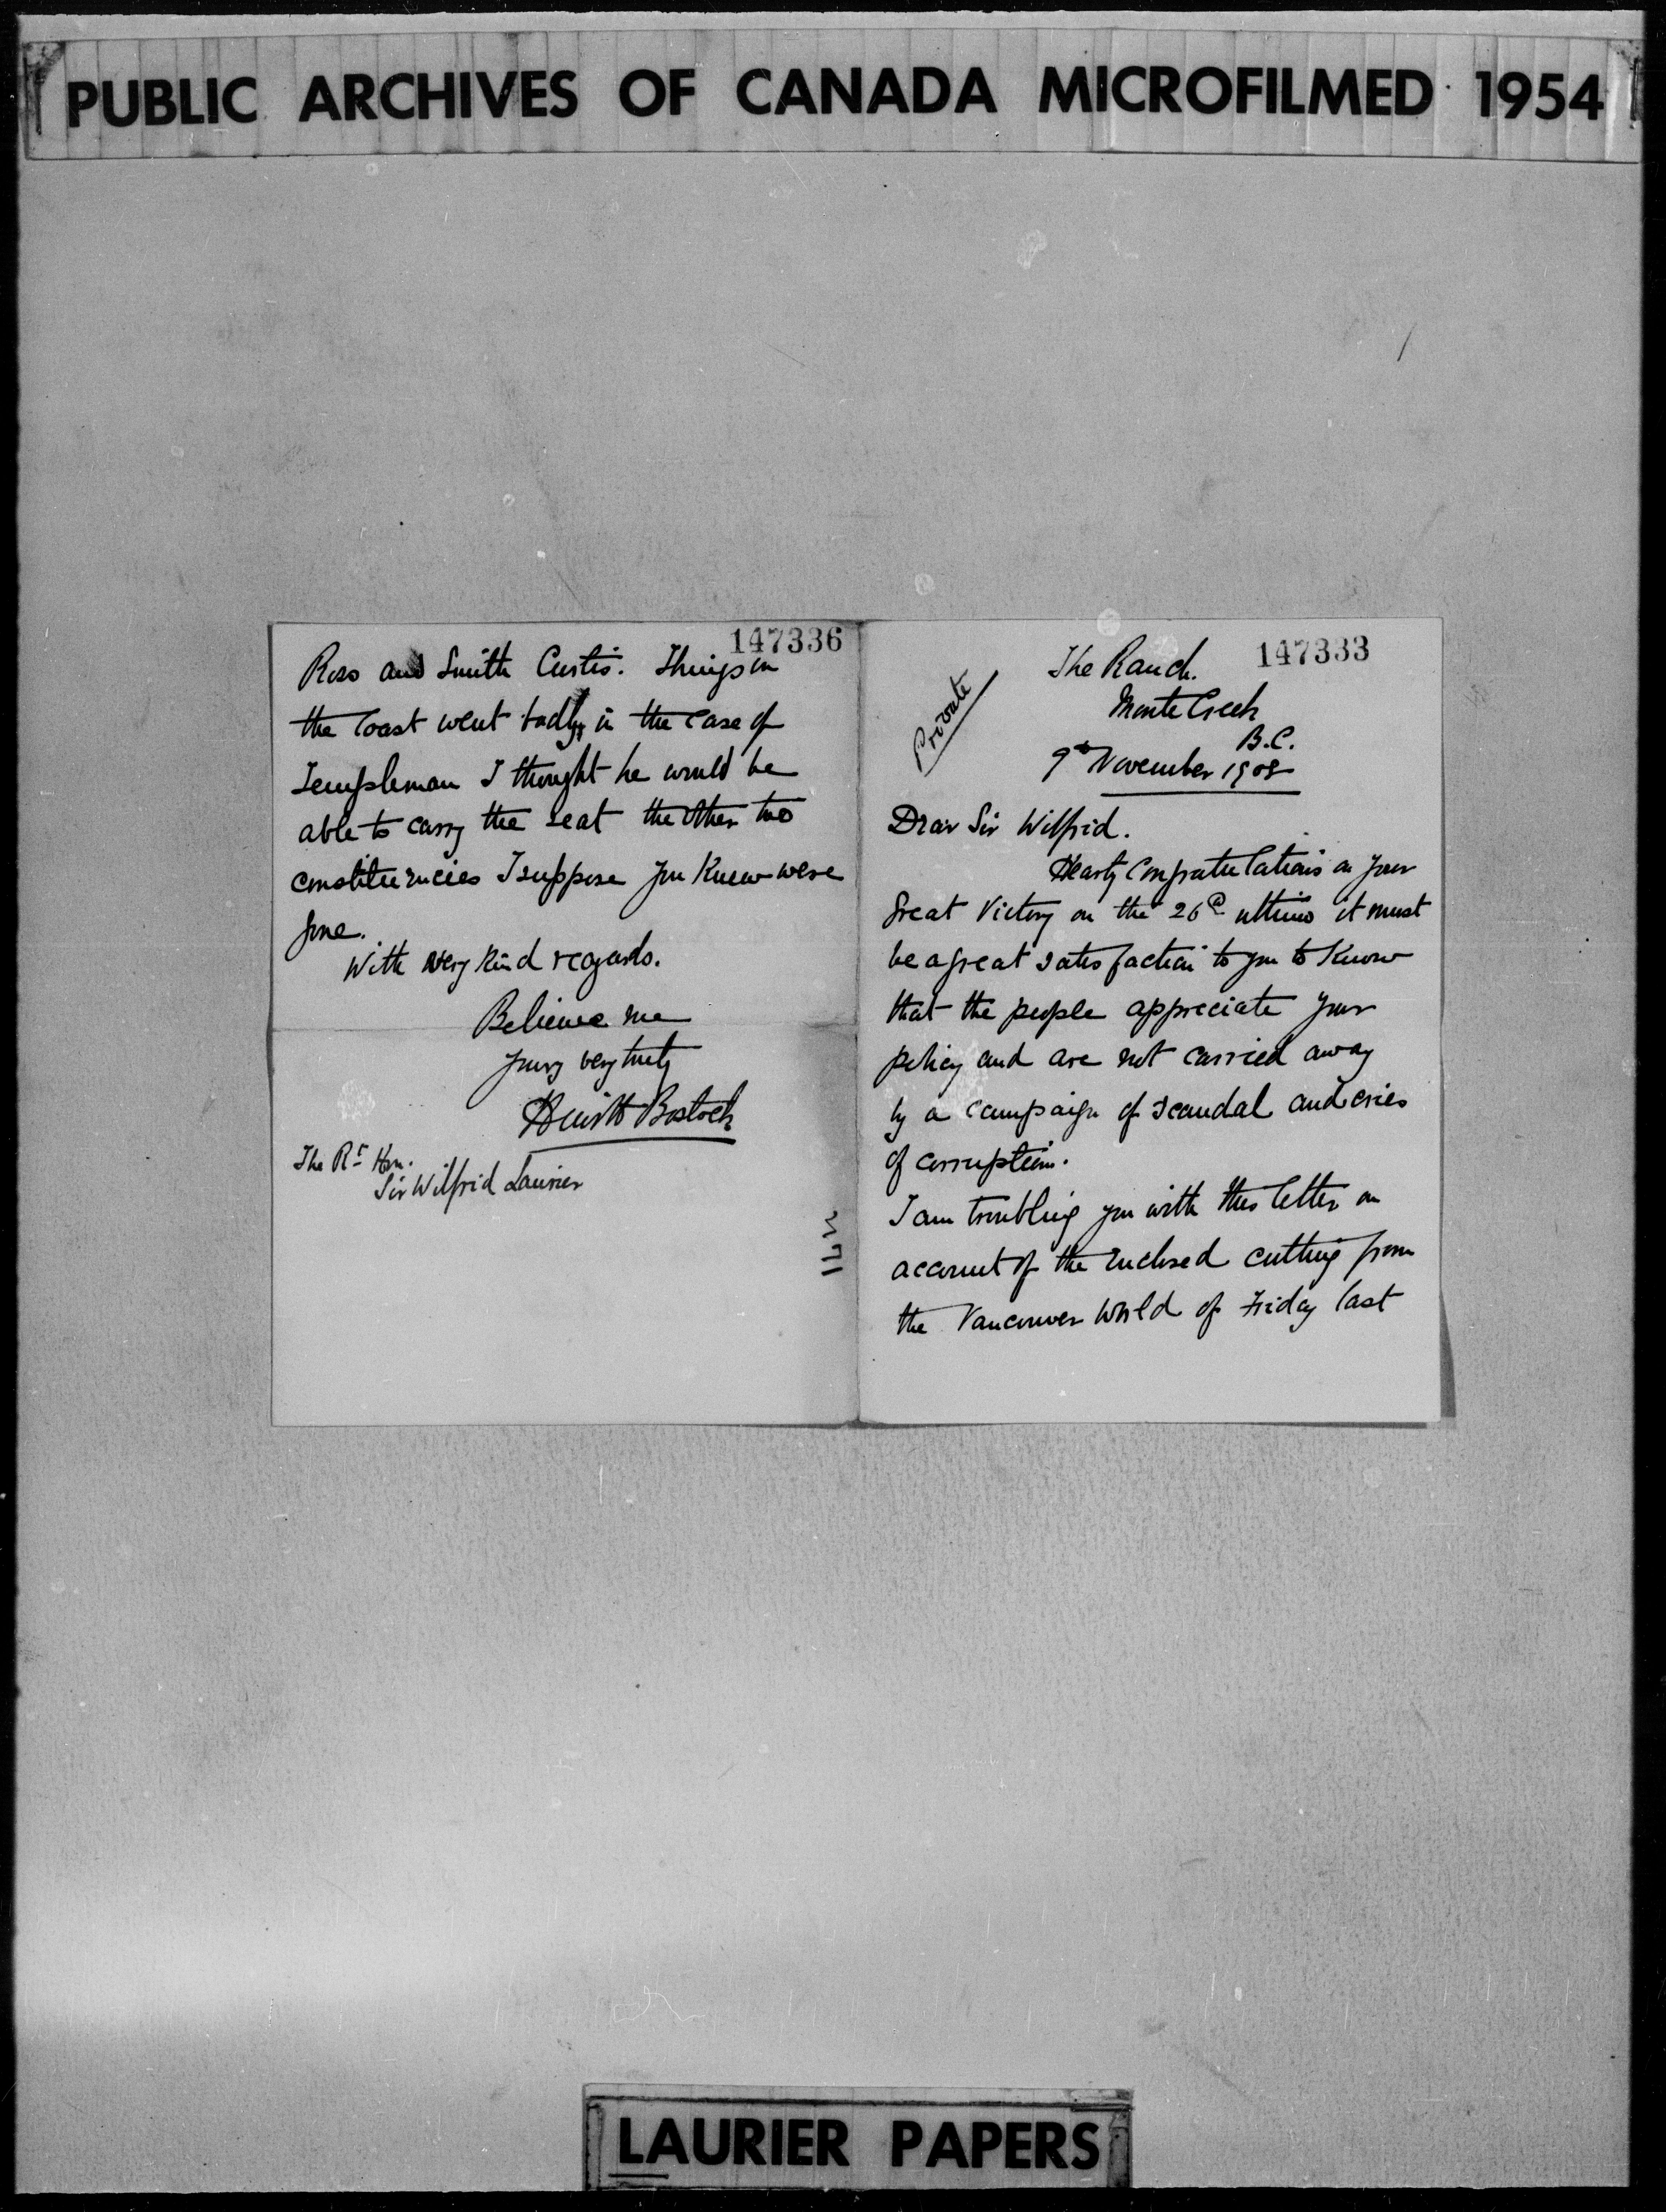 PUBLIC ARCHIVES OF CANADA MICROFILMED 1954
147336
Ross and Smith Curtis. Things on
the Coast went badly, in the case of
Templeman I thought he would be
able to carry the seat the other two
constituencies I suppose you knew were
gone.
With very kind regards.
Believe me
yours very truly
Hewitt Bostock
The Rt Hon.
Sir Wilfrid Laurier
147333
Private
The Ranch.
Monte Creek
B.C.
9th November 1908
Dear Sir Wilfrid.
Hearty Congratulations on your
Great Victory on the 26th ultimo it must
be a great satisfaction to you to know
that the people appreciate your
policy and are not carried away
by a campaign of scandal and cries
of corruption.
I am troubling you with this letter on
account of the enclosed cutting from
the Vancouver World of Friday last
LAURIER PAPERS